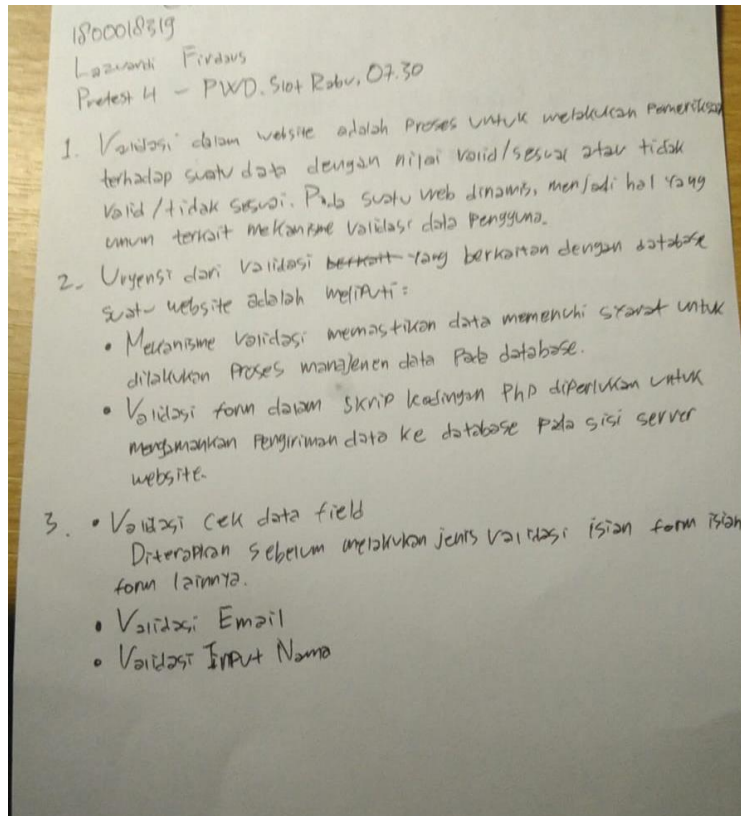 1800018319
Lazuardi Firdaus
Pretest 4 - PWD. Slot Rabu, 07.30
1. Validasi dalam website adalah proses untuk melakukan pemeriksaan
terhadap suatu data dengan nilai valid/sesuai atau tidak
valid/tidak sesuai. Pada suatu web dinamis, menjadi hal yang
umum terkait mekanisme validasi data pengguna.
2. Urgensi dari validasi berkait yang berkaitan dengan database
suatu website adalah meliputi:
• Mekanisme validasi memastikan data memenuhi syarat untuk
dilakukan proses manajemen data pada database.
• Validasi form dalam skrip kodingan PhP diperlukan untuk
mengamankan pengiriman data ke database pada sisi server
website.
3. • Validasi cek data field
Diterapkan sebelum melakukan jenis validasi isian form isian
form lainnya.
• Validasi Email
• Validasi Input Nama